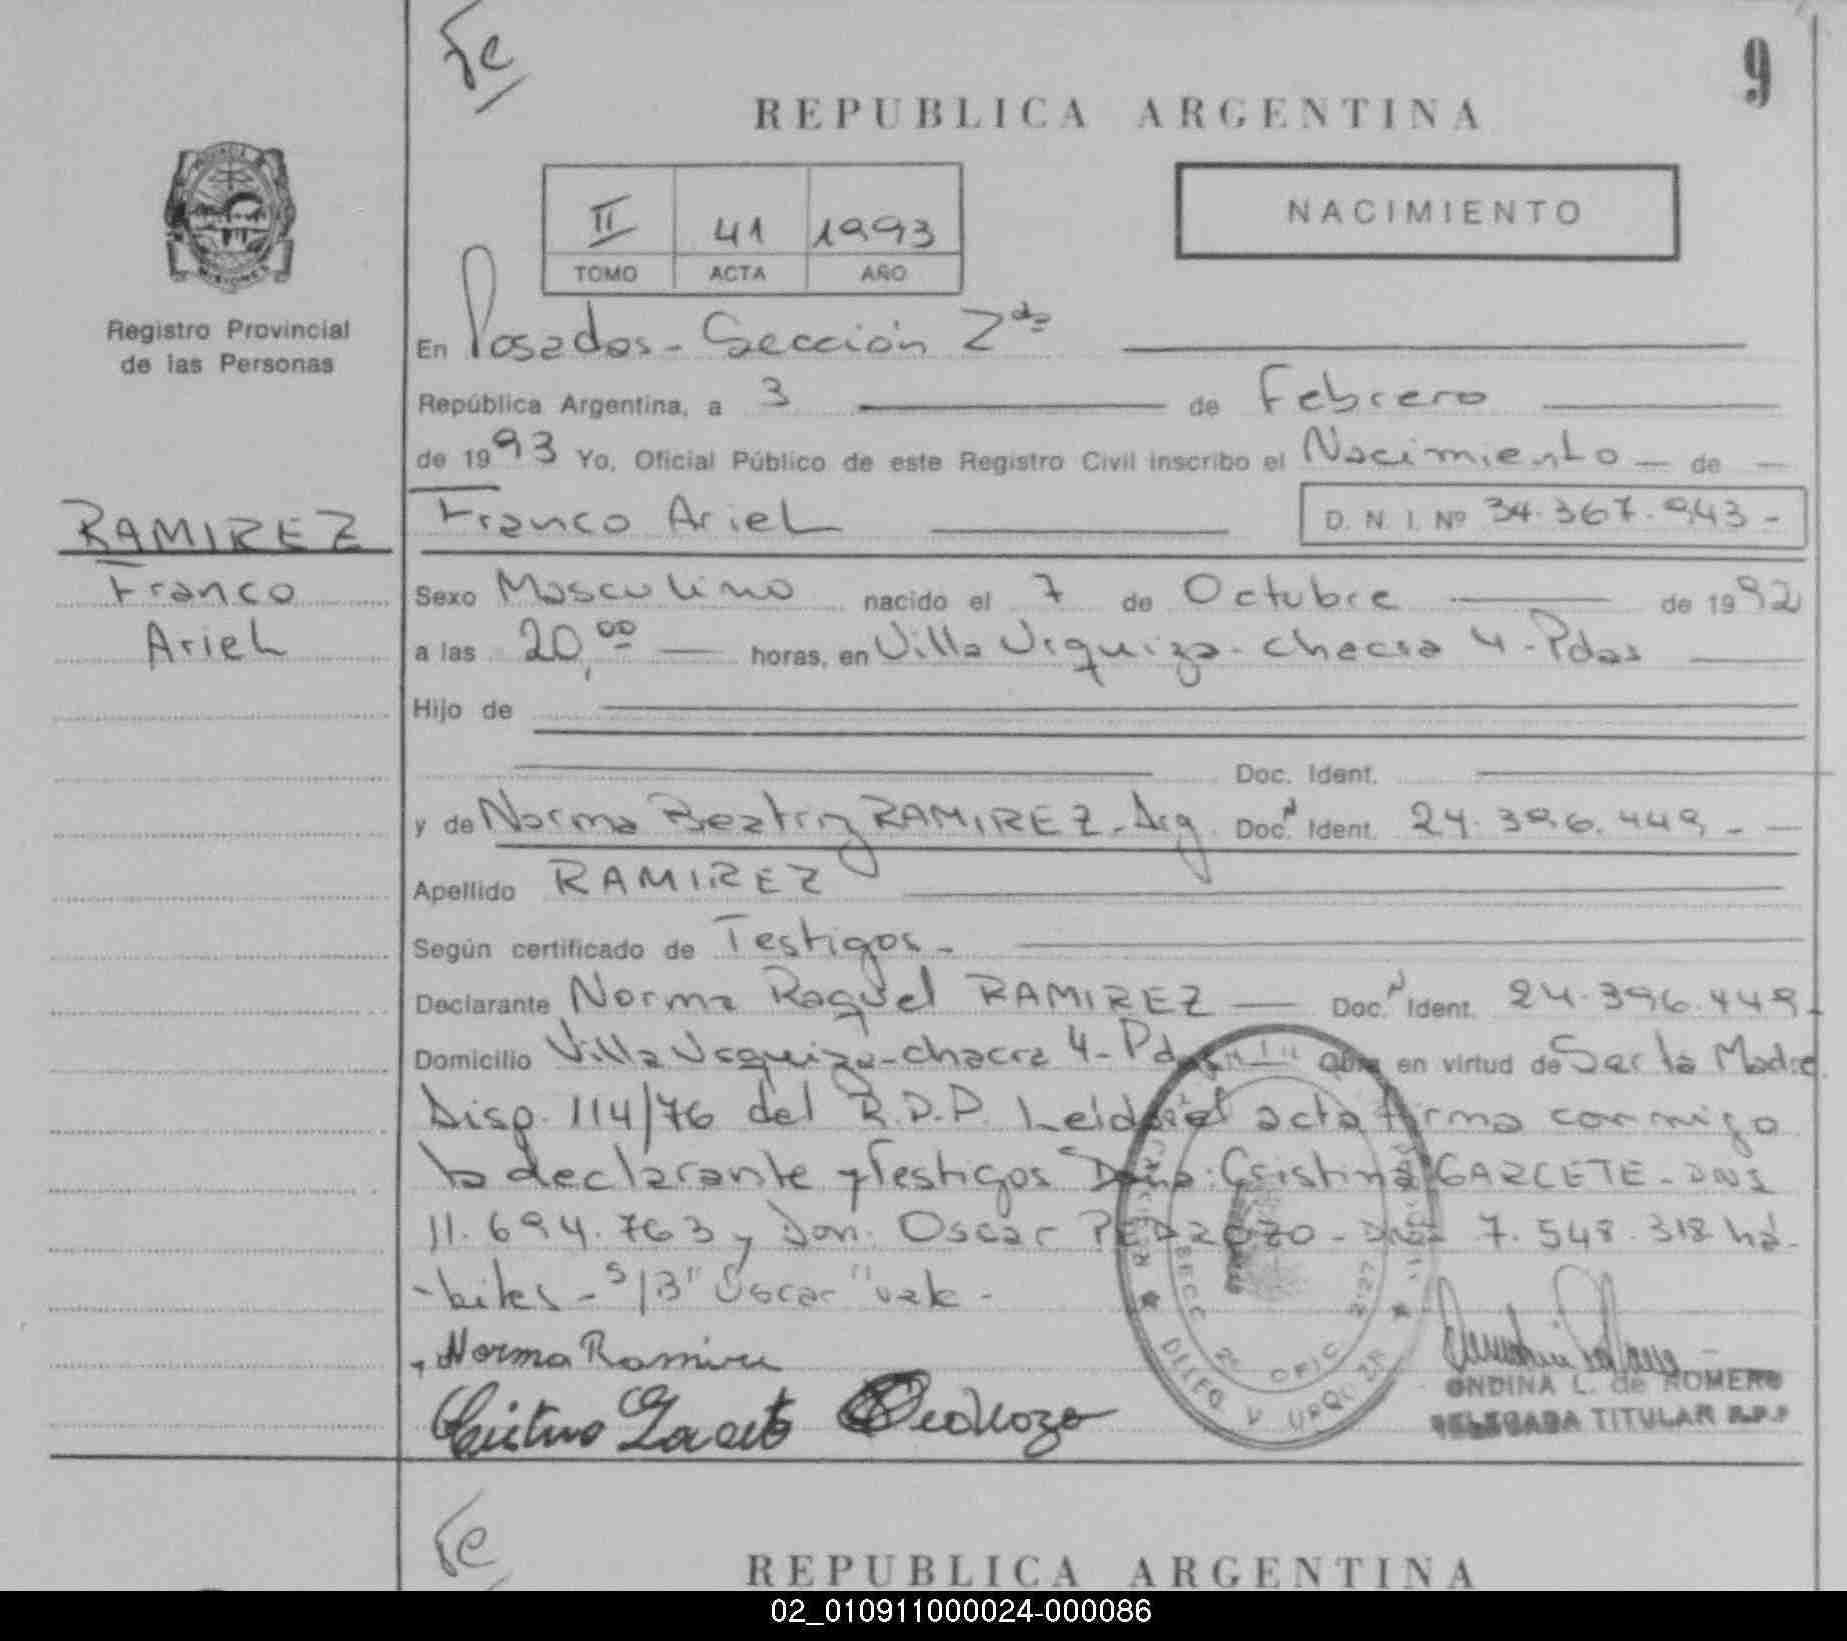 Fe
9
REPUBLICA ARGENTINA
II 41 1993
TOMO ACTA AÑO
NACIMIENTO
Registro Provincial
de las Personas
En Posadas - Sección 2da
República Argentina, a 3 de Febrero
de 1993 Yo, Oficial Público de este Registro Civil inscribo el Nacimiento de
RAMIREZ
Franco
Ariel
Franco Ariel D. N. I. Nº 34.367.943-
Sexo Masculino nacido el 7 de Octubre de 1992
a las 20,00 horas, en Villa Urquiza - Chacra 4 - Pdas
Hijo de
Doc. Ident.
y de Norma Beatriz RAMIREZ - Arg. Doc. Ident. 24.396.449 -
Apellido RAMIREZ
Según certificado de Testigos -
Declarante Norma Raquel RAMIREZ Doc. Ident. 24.396.449 -
Domicilio Villa Urquiza - chacra 4 - Pdas Obra en virtud de Ser la Madre
Disp. 114/76 del R.P.P. Leida el acta firma conmigo
la declarante y Testigos Doña: Cristina GARCETE - DNI
11.694.763 y Don: Oscar PEDROZO - DNI 7.548.318 há-
-biles - S/B "Oscar" vale -
Norma Ramirez
Cristina Garcete Pedrozo
ONDINA L. de ROMERO
DELEGADA TITULAR R.P.P
Fe
REPUBLICA ARGENTINA
02_010911000024-000086